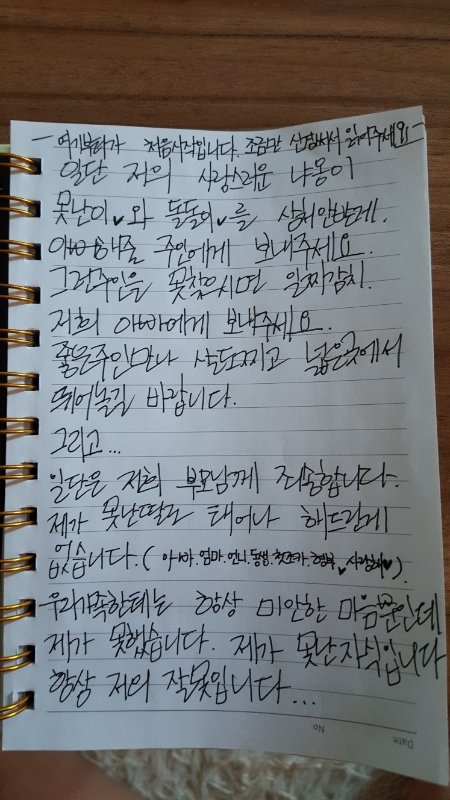 - 여기부터가 처음시작입니다. 조금만 신경써서 읽어주세요 -
일단 저의 사랑스러운 냐옹이
못난이♥와 돌돌이♥를 상처안받게.
아빠해줄 주인에게 보내주세요.
그런주인을 못찾으시면 일찌감치.
저희 아빠에게 보내주세요.
좋은주인만나 살도찌고 넓은곳에서
뛰어놀길 바랍니다.
그리고...
일단은 저희 부모님께 죄송합니다.
제가 못난딸로 태어나 해드린게
없습니다. (아빠.엄마.언니.동생. 사랑해♥).
우리가족한테는 항상 미안한 마음뿐인데
제가 못했습니다. 제가 못난자식입니다
항상 저의 잘못입니다...
No.
Date.